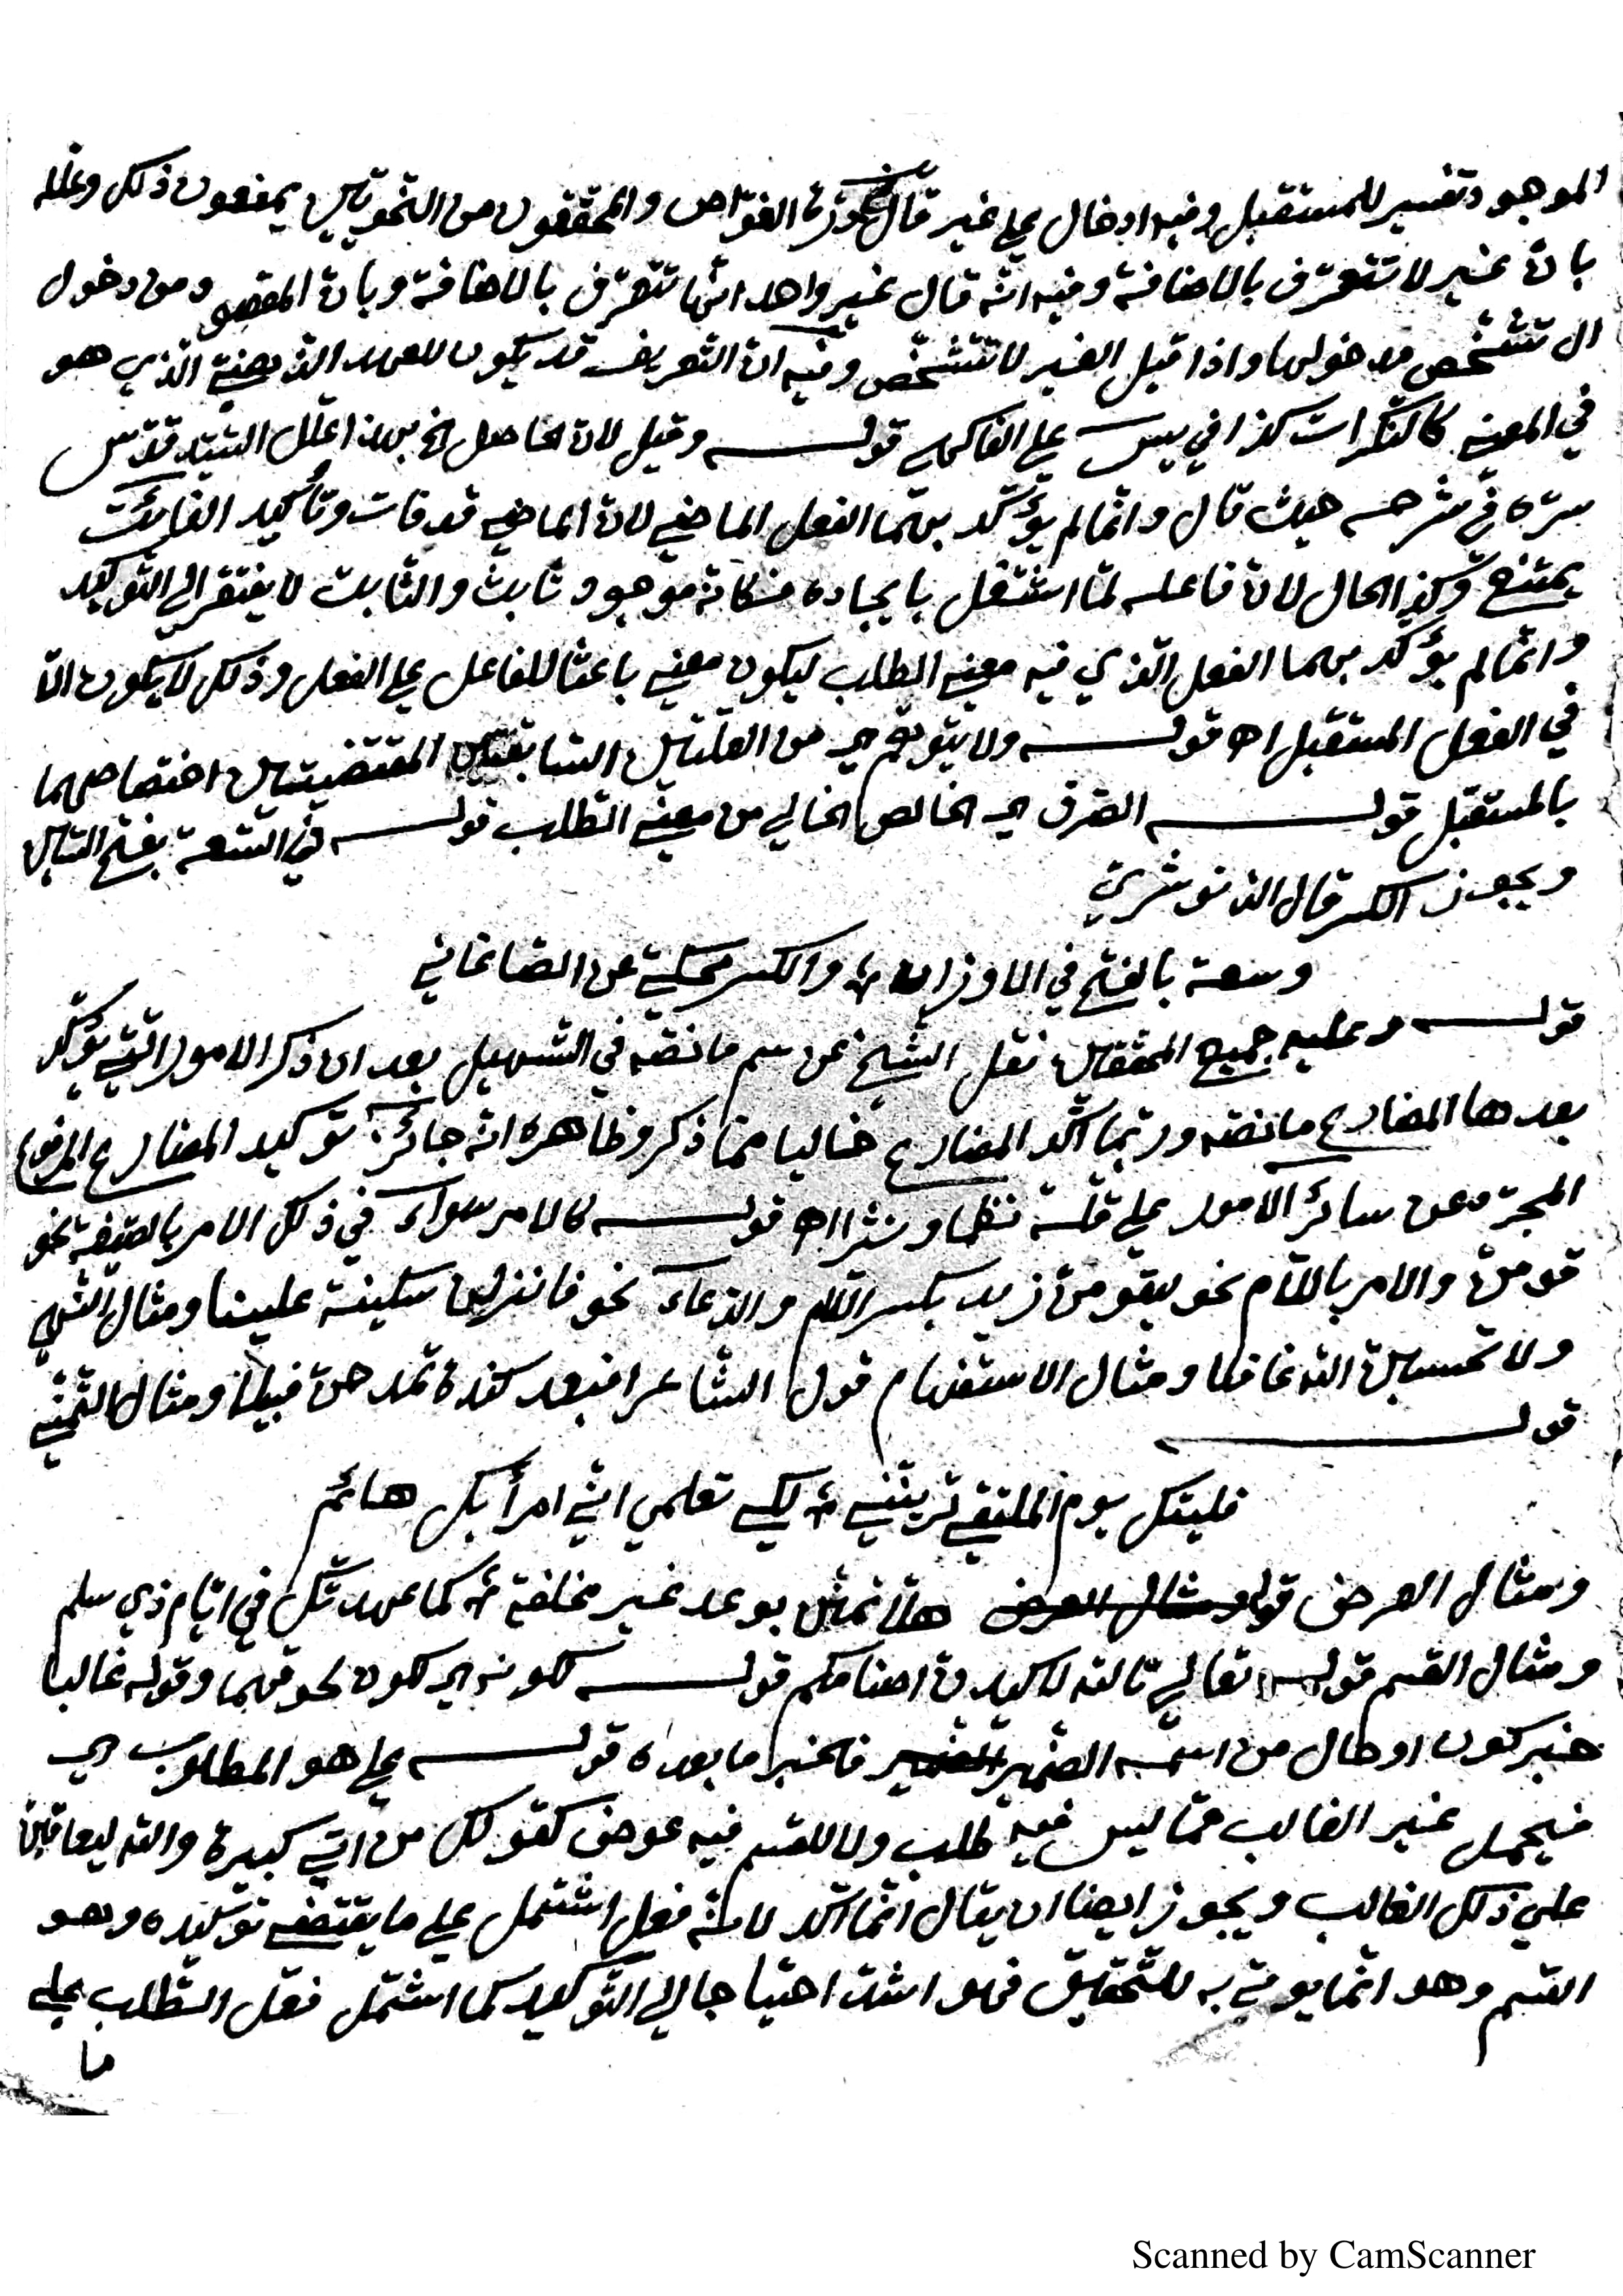 الموجود تفسير للمستقبل وفيه ادخال على غير قال في درة الغوّاص والمحققون من النحويّين يمنعون ذلك وعلله
بانّ غير لا تتعرّف بالاضافة وفيه انّه قال غير واحد انّها تتعرّف بالاضافة وبانّ المقصود من دخول
ال تشخّص مدخولها واذا قيل الغير لا تتشخّص وفيه انّ التعريف قد يكون للعهد الذّهنيّ الّذي هو
في المعنى كالنّكرات كذا في يس على الفاكهي قوله وقيل لانّ الحاصل الخ بهذا علّل السّيّد قدّس
سرّه في شرحه حيث قال وانّما لم يؤكّد بهما الفعل الماضي لانّ الماضي قد فات وتأكيد الفائت
يمتنع وكذا الحال لانّ فاعله لمّا اشتغل بايجاده فكانّه موجود ثابت والثابت لا يفتقر الى التّوكيد
وانّما لم يؤكّد بهما الفعل الّذي فيه معنى الطلب ليكون معنى باعثا للفاعل على الفعل وذلك لا يكون الّا
في الفعل المستقبل اه قوله ولا يتوهّم اي من العلّتين السّابقتين المقتضيتين اختصاصهما
بالمستقبل قوله الصّرف اي الخالص الخالي من معنى الطّلب قوله في السّعة بفتح السّين
ويجوز الكسر قال الدنوشريّ
وسعة بالفتح في الاوزان ، والكسر محكيّ عن الصّاغاني
قوله وعليه جميع المحقّقين نقل الشّيخ عن سم ما نصّه في التّسهيل بعد ان ذكر الامور الّتي يؤكّد
بعدها المضارع ما نصّه وربّما اكّد المضارع خاليا ممّا ذكر وظاهره انّه جائز توكيد المضارع المرفوع
المجرّد عن سائر الامور على قلّة نظما ونثرا اه قوله كالامر سواء في ذلك الامر بالصّيغة نحو
قومنّ والامر باللّام نحو ليقومنّ زيد بكسر اللّام والدّعاء نحو فانزلن سكينة علينا ومثال النّهي
ولا تحسبنّ الله غافلا ومثال الاستفهام قول الشاعر افبعد كندة تمدحنّ قبيلا ومثال التّمنّي
قوله
فليتك يوم الملتقى ترينّني ، لكي تعلمي انّي امرأ بك هائم
ومثال العرض قوله ومثال العرض هلّا تمننّ بوعد غير مخلفة ، كما عهدتك في ايّام ذي سلم
ومثال القسم قوله تعالى تالله لاكيدنّ اصنامكم قوله لكونه اي لكون لحوقهما وقوله غالبا
خبر كون او حال من اسمه الضّمير الضمير فالخبر ما بعده قوله على هو المطلوب اي
فيحمل غير الغالب ممّا ليس فيه طلب ولا للقسم فيه عوض كقولك من اتى كبيرة والله ليعاقبنّ
على ذلك الغالب ويجوز ايضا ان يقال انّما اكّد لانّه فعل اشتمل على ما يقتضي توكيده وهو
القسم وهو انّما يؤتى به للتّحقيق فهو اشدّ احتياجا الى التّوكيد كما اشتمل فعل الطّلب على
ما
Scanned by CamScanner